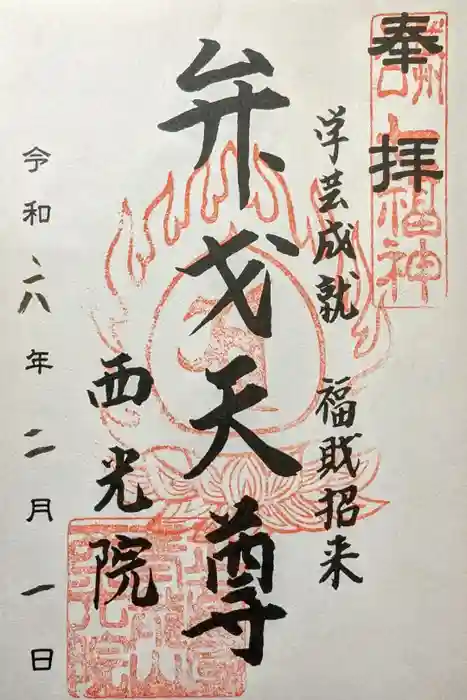 奉拝
七福神
学芸成就 福財招来
弁才天尊
西光院
令和六年二月一日